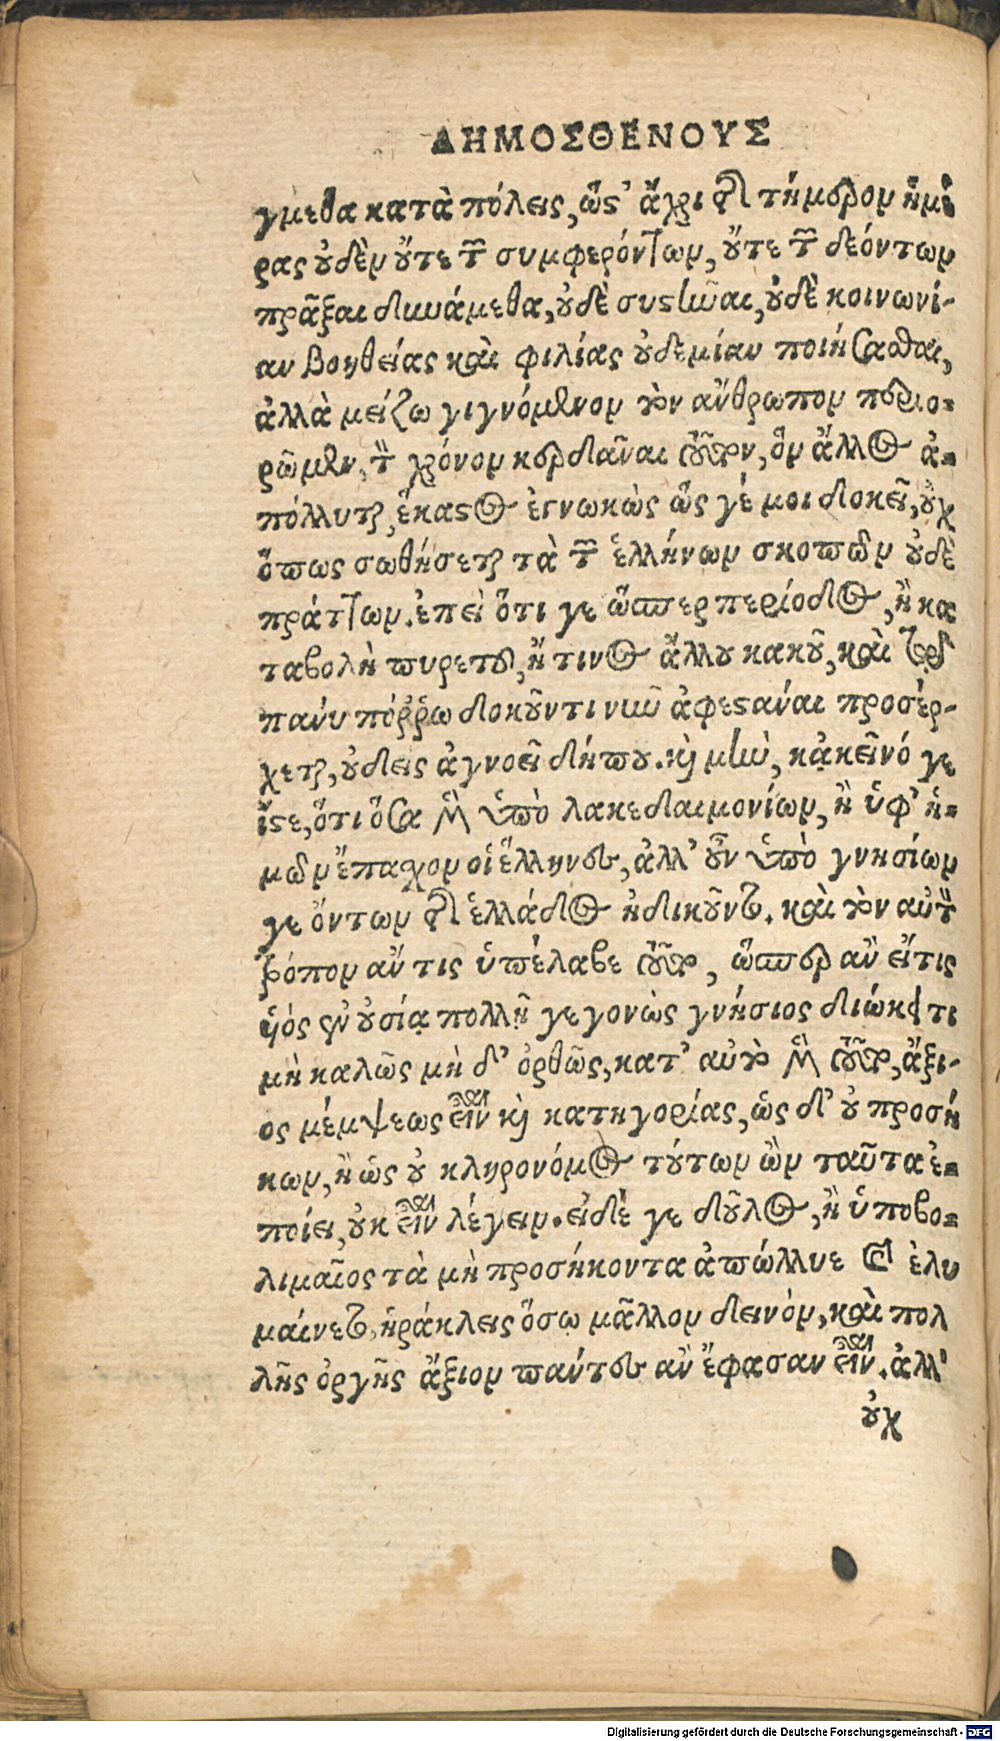 ΔΗΜΟΣΘΕΝΟΥΣ
γμεθα κατὰ πόλεις, ὥστ' ἄχρι τῆς τήμερον ἡμέ
ρας οὐδὲν οὔτε τῶν συμφερόντων, οὔτε τῶν δεόντων
πρᾶξαι δυνάμεθα, οὐδὲ συστῆναι, οὐδὲ κοινωνί-
αν βοηθείας καὶ φιλίας οὐδεμίαν ποιήσασθαι,
ἀλλὰ μείζω γιγνόμενον τὸν ἄνθρωπον περιο-
ρῶμεν, τὸν χρόνον κερδᾶναι τοῦτον, ὃν ἄλλος ἀ-
πόλλυται, ἕκαστος ἐγνωκὼς ὥς γέ μοι δοκεῖ, οὐχ
ὅπως σωθήσεται τὰ τῶν ἑλλήνων σκοπῶν οὐδὲ
πράττων. ἐπεὶ ὅτι γε ὥσπερ περίοδος, ἢ κα
ταβολὴ πυρετοῦ, ἤ τινος ἄλλου κακοῦ, καὶ τῷ
πάνυ πόῤῥω δοκοῦντι νῦν ἀφεστάναι προσέρ-
χεται, οὐδεὶς ἀγνοεῖ δήπου. καὶ μὴν, κἀκεῖνό γε
ἴστε, ὅτι ὅσα μὲν ὑπὸ λακεδαιμονίων, ἢ ὑφ' ἡ-
μῶν ἔπαχον οἱ ἕλληνες, ἀλλ' οὖν ὑπὸ γνησίων
γε ὄντων τῆς ἑλλάδος ἠδικοῦντο. καὶ τὸν αὐτὸν
τρόπον ἄν τις ὑπέλαβε τοῦτο, ὥσπερ ἂν εἴ τις
υἱὸς ἐν οὐσίᾳ πολλῇ γεγονὼς γνήσιος διώκει τι
μὴ καλῶς μὴ δ' ὀρθῶς, κατ' αὐτὸ μὲν τοῦτο, ἄξι-
ος μέμψεως εἶναι καὶ κατηγορίας, ὡς δ' οὐ προσή
κων, ἢ ὡς οὐ κληρονόμος τούτων ὢν ταῦτα ἐ-
ποίει, οὐκ εἶναι λέγειν. εἰ δέ γε δοῦλος, ἢ ὑποβο-
λιμαῖος τὰ μὴ προσήκοντα ἀπώλλυε καὶ ἐλυ
μαίνετο, ἡράκλεις ὅσῳ μᾶλλον δεινὸν, καὶ πολ
λῆς ὀργῆς ἄξιον πάντες ἂν ἔφασαν εἶναι. ἀλλ'
οὐχ
Digitalisierung gefördert durch die Deutsche Forschungsgemeinschaft - DFG